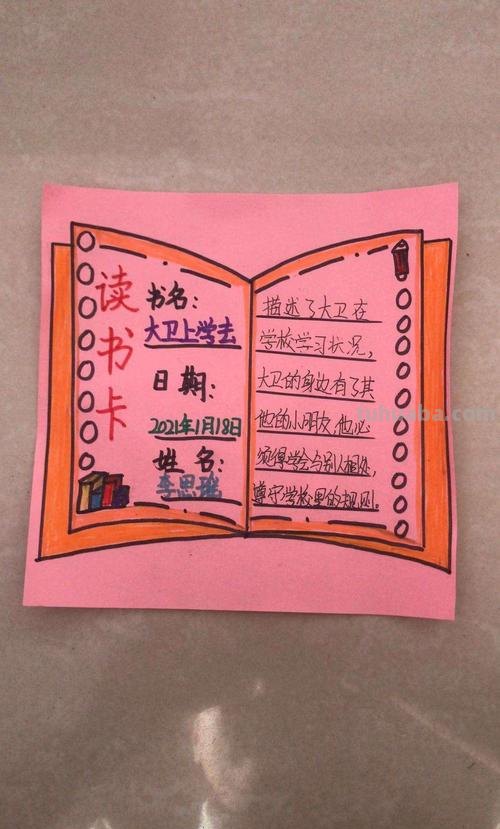 读书卡
书名:
大卫上学去
日期:
2021年1月18日
姓名:
李思瑶
描述了大卫在
学校学习状况,
大卫的身边有了其
他的小朋友,他必
须得学会与别人相处,
遵守学校里的规则。